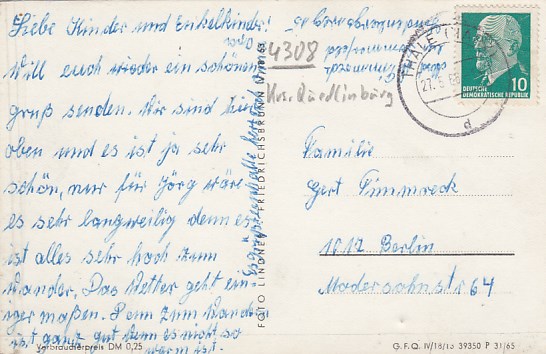 Liebe Kinder und Enkelkinder!
Will euch wieder ein schönen
gruß senden. Wir sind hier
oben und es ist ja sehr
schön, nur für Jörg wäre
es sehr langweilig denn es
ist alles sehr hoch zum
Wander. Das Wetter geht ein-
iger maßen. Denn zum Wandern
ist ganz gut wenn es nicht so
warm ist.
Verbraucherpreis DM 0,25
FOTO LINDNER, FRIEDRICHSBRUNN (HARZ)
4308
Krs. Quedlinburg
THALE (HARZ)
d
10
DEUTSCHE
DEMOKRATISCHE REPUBLIK
Familie
Gert Timmreck
1017 Berlin
Modersohnstr 64
G.F.Q. IV/18/15 39350 P 31/65